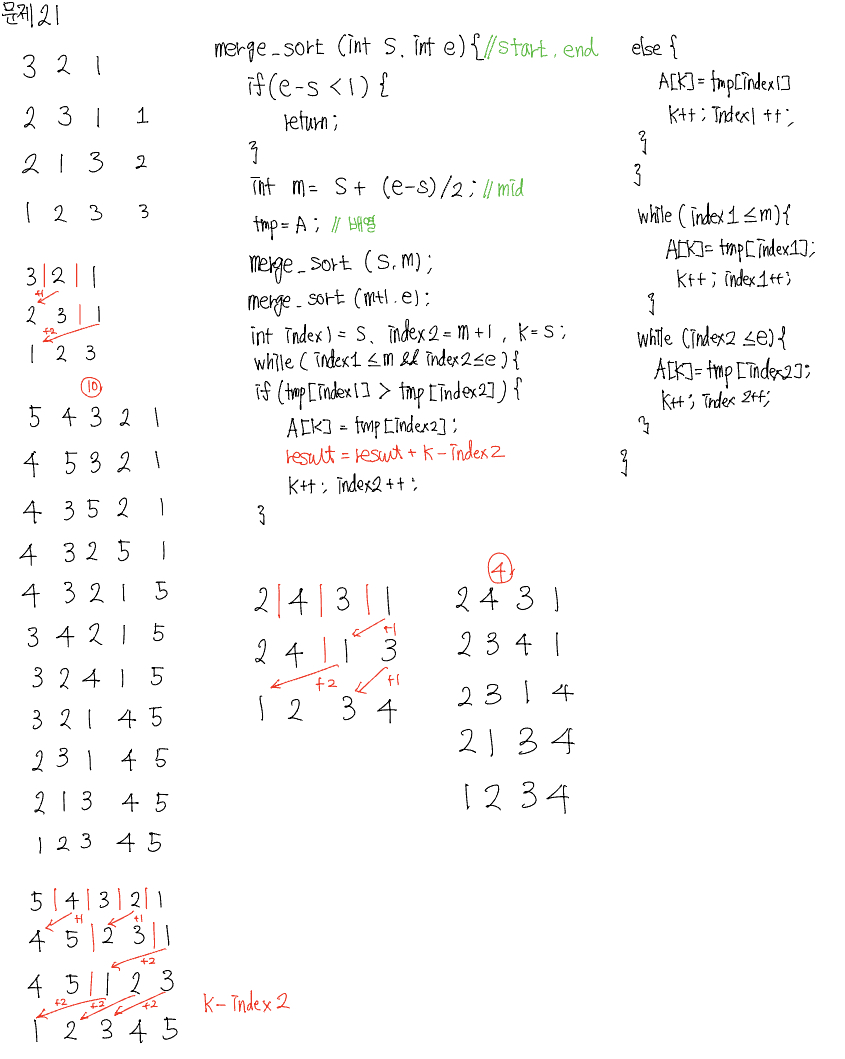 문제 21
3 2 1
2 3 1 1
2 1 3 2
1 2 3 3
3|2|1
+1
2 3|1
+2
1 2 3
10
5 4 3 2 1
4 5 3 2 1
4 3 5 2 1
4 3 2 5 1
4 3 2 1 5
3 4 2 1 5
3 2 4 1 5
3 2 1 4 5
2 3 1 4 5
2 1 3 4 5
1 2 3 4 5
5|4|3|2|1
+1 +1
4 5|2 3|1
+2
4 5|1 2 3
+2 +2 +2
1 2 3 4 5
k-index2
merge_sort (int S, int e){ //start, end
if(e-s<1) {
return;
}
int m= S+ (e-s)/2; //mid
tmp=A; // 배열
merge_sort (S,m);
merge_sort (m+1, e);
int index1=S, index2=m+1, k=S;
while (index1≤m && index2≤e){
if (tmp[index1] > tmp[index2]) {
A[k] = tmp[index2];
result = result + k-index2
k++; index2++;
}
2|4|3|1
+1
2 4|1 3
+2 +1
1 2 3 4
4
2 4 3 1
2 3 4 1
2 3 1 4
2 1 3 4
1 2 3 4
else {
A[k]=tmp[index1]
k++; index1++;
}
}
while (index1≤m){
A[k]=tmp[index1];
k++; index1++;
}
while (index2≤e){
A[k]=tmp[index2];
k++; index2++;
}
}